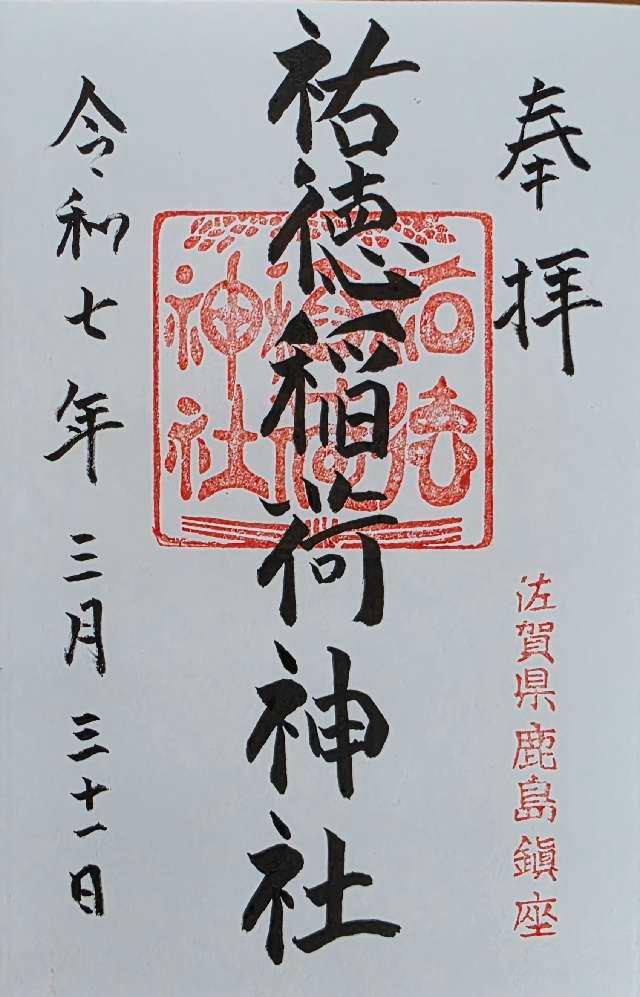 奉拝
佐賀県鹿島鎮座
祐徳稲荷神社
祐徳
稲荷
神社
令和七年三月三十一日